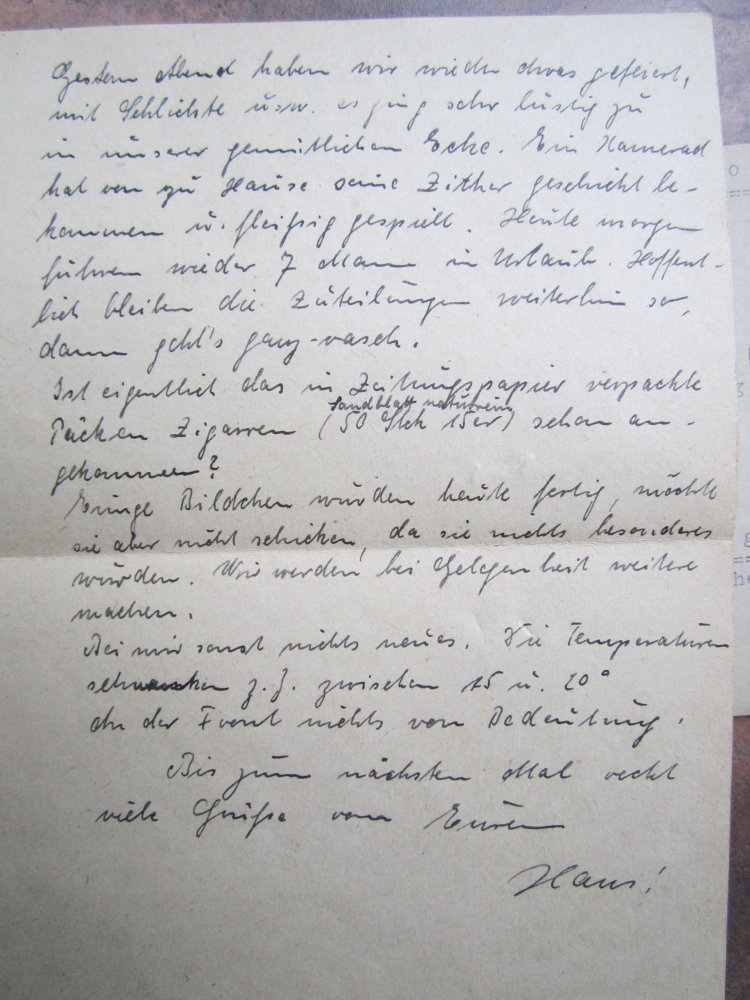 Gestern Abend haben wir wieder etwas gefeiert,
mit Schlichte usw. es ging sehr lustig zu
in unserer gemütlichen Ecke. Ein Kamerad
hat von zu Hause seine Zither geschickt be-
kommen u. fleißig gespielt. Heute morgen
fuhren wieder 7 Mann in Urlaub. Hoffent-
lich bleiben die Zuteilungen weiterhin so,
dann geht's ganz rasch.
Ist eigentlich das in Zeitungspapier verpackte
Sandblatt naturrein
Päckchen Zigarren (50 Stck 15er) schon an-
gekommen?
Einige Bildchen wurden heute fertig, möchte
sie aber nicht schicken, da sie nichts besonderes
wurden. Wir werden bei Gelegenheit weitere
machen.
Bei mir sonst nichts neues. Die Temperaturen
schwanken z.Z. zwischen 15 u. 20°
An der Front nichts von Bedeutung.
Bis zum nächsten Mal recht
viele Grüße von Eurem
Hans!
o
g